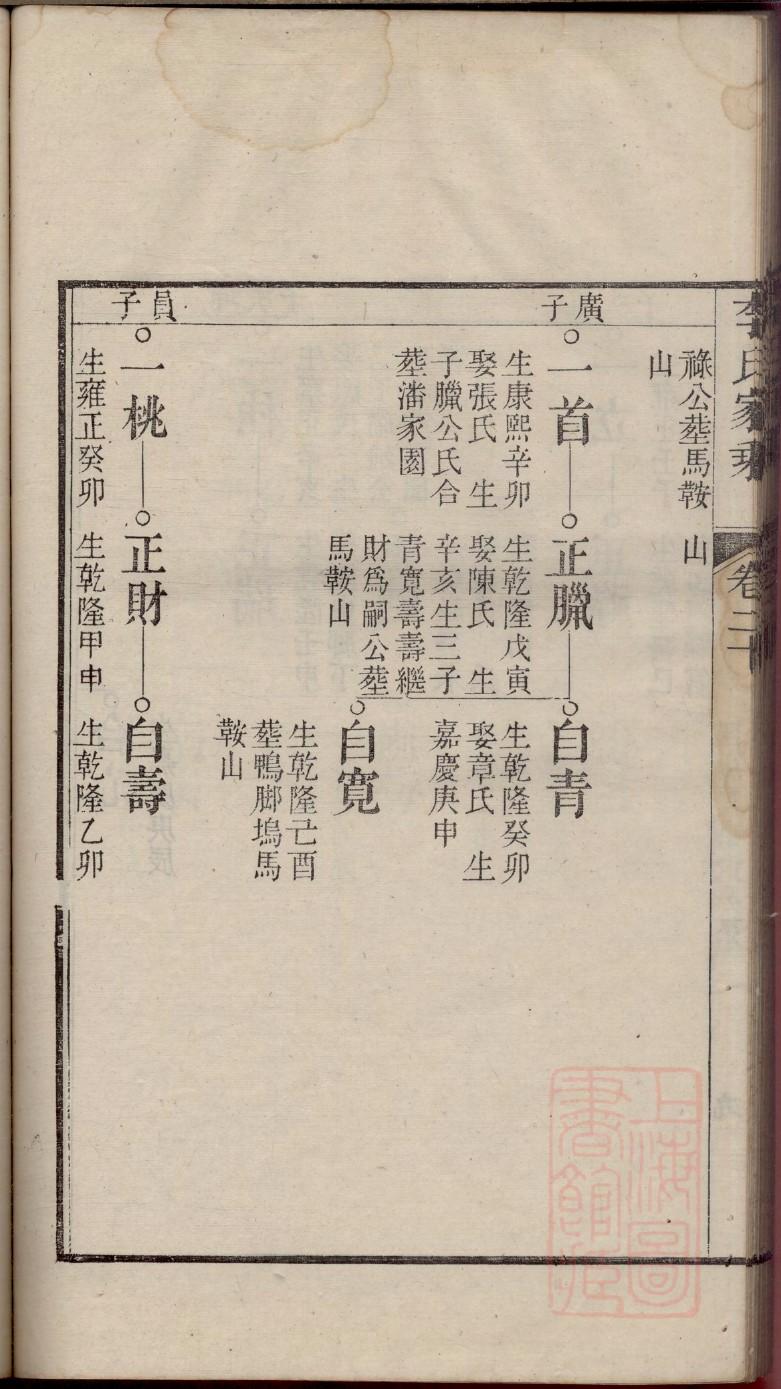 李氏家乘
卷二十
祿公塟馬鞍
山
山
廣子
一首
生康熙辛卯
娶張氏 生
子臘公氏合
塟潘家園
正臘
生乾隆戊寅
娶陳氏 生
辛亥生三子
青寬壽壽繼
財爲嗣公塟
馬鞍山
自青
生乾隆癸卯
娶章氏 生
嘉慶庚申
自寬
生乾隆己酉
塟鴨脚塢馬
鞍山
員子
一桃
生雍正癸卯
正財
生乾隆甲申
自壽
生乾隆乙卯
上海圖
書館藏